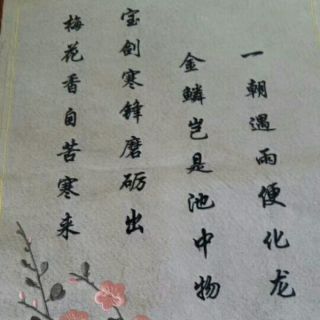 一朝遇雨便化龙
金鳞岂是池中物
宝剑寒锋磨砺出
梅花香自苦寒来